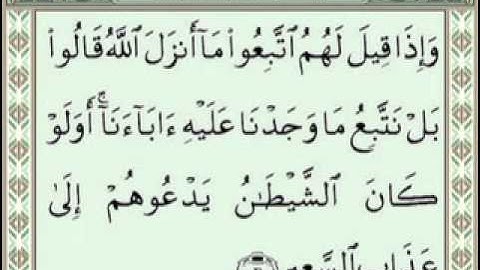 وَإِذَا قِيلَ لَهُمُ ٱتَّبِعُواْ مَآ أَنزَلَ ٱللَّهُ قَالُواْ
بَلۡ نَتَّبِعُ مَا وَجَدۡنَا عَلَيۡهِ ءَابَآءَنَآۚ أَوَلَوۡ
كَانَ ٱلشَّيۡطَٰنُ يَدۡعُوهُمۡ إِلَىٰ
عَذَابِ ٱلسَّعِيرِ